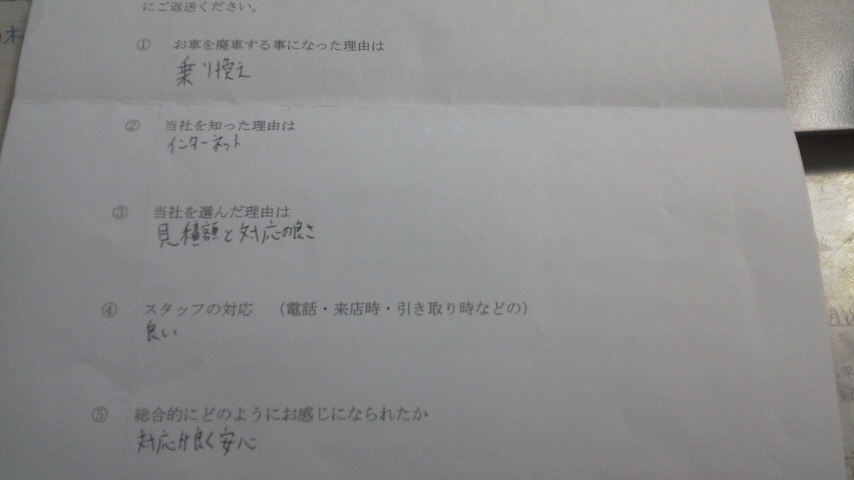 にご返送ください。
① お車を廃車する事になった理由は
乗り換え
② 当社を知った理由は
インターネット
③ 当社を選んだ理由は
見積額と対応の良さ
④ スタッフの対応 （電話・来店時・引き取り時などの）
良い
⑤ 総合的にどのようにお感じになられたか
対応が良く安心